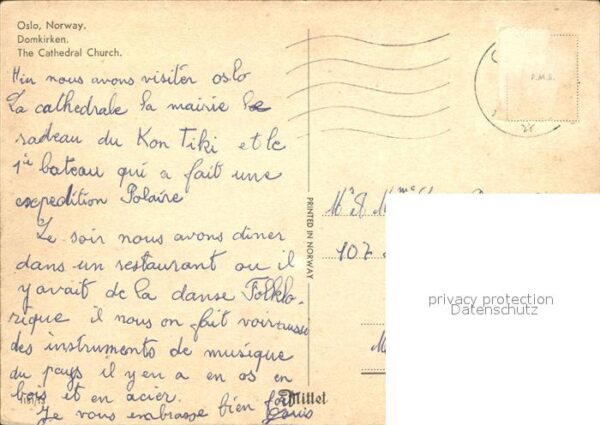 Oslo, Norway.
Domkirken.
The Cathedral Church.
Hin nous avons visiter oslo
La cathedrale la mairie le
radeau du Kon Tiki et le
1e bateau qui a fait une
expedition Polaire
Le soir nous avons diner
dans un restaurant ou il
y avait de la danse Folklo.
rique il nous on fait voir aussi
des instruments de musique
du pays il y en a en os en
bois et en acier.
Je vous embrasse bien fort
PRINTED IN NORWAY
Mittet
P.M.S.
Mr & Mme
107
privacy protection
Datenschutz